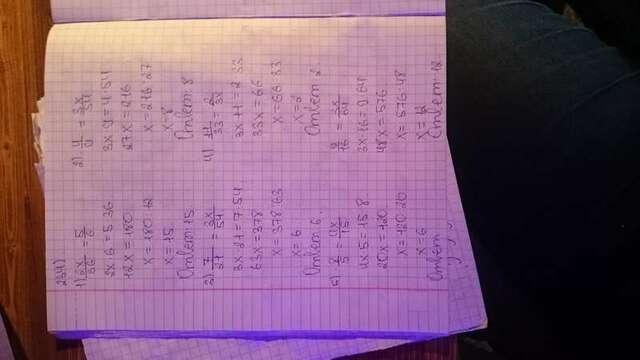 234)
1) 2x/36 = 5/6
2x·6=5·36
12x=180
x=180:12
x=15
Ответ: 15
2) 4/9 = 3x/54
3x·9=4·54
27x=216
x=216:27
x=8
Ответ: 8
3) 7/21 = 3x/54
3x·21=7·54
63x=378
x=378:63
x=6
Ответ: 6
4) 11/33 = 2/3x
3x·11=2·33
33x=66
x=66:33
x=2
Ответ: 2
4x·5=15·8
20x=120
x=120:20
x=6
Ответ
9/16 = 3x/64
3x·16=9·64
48x=576
x=576:48
x=12
Ответ: 12